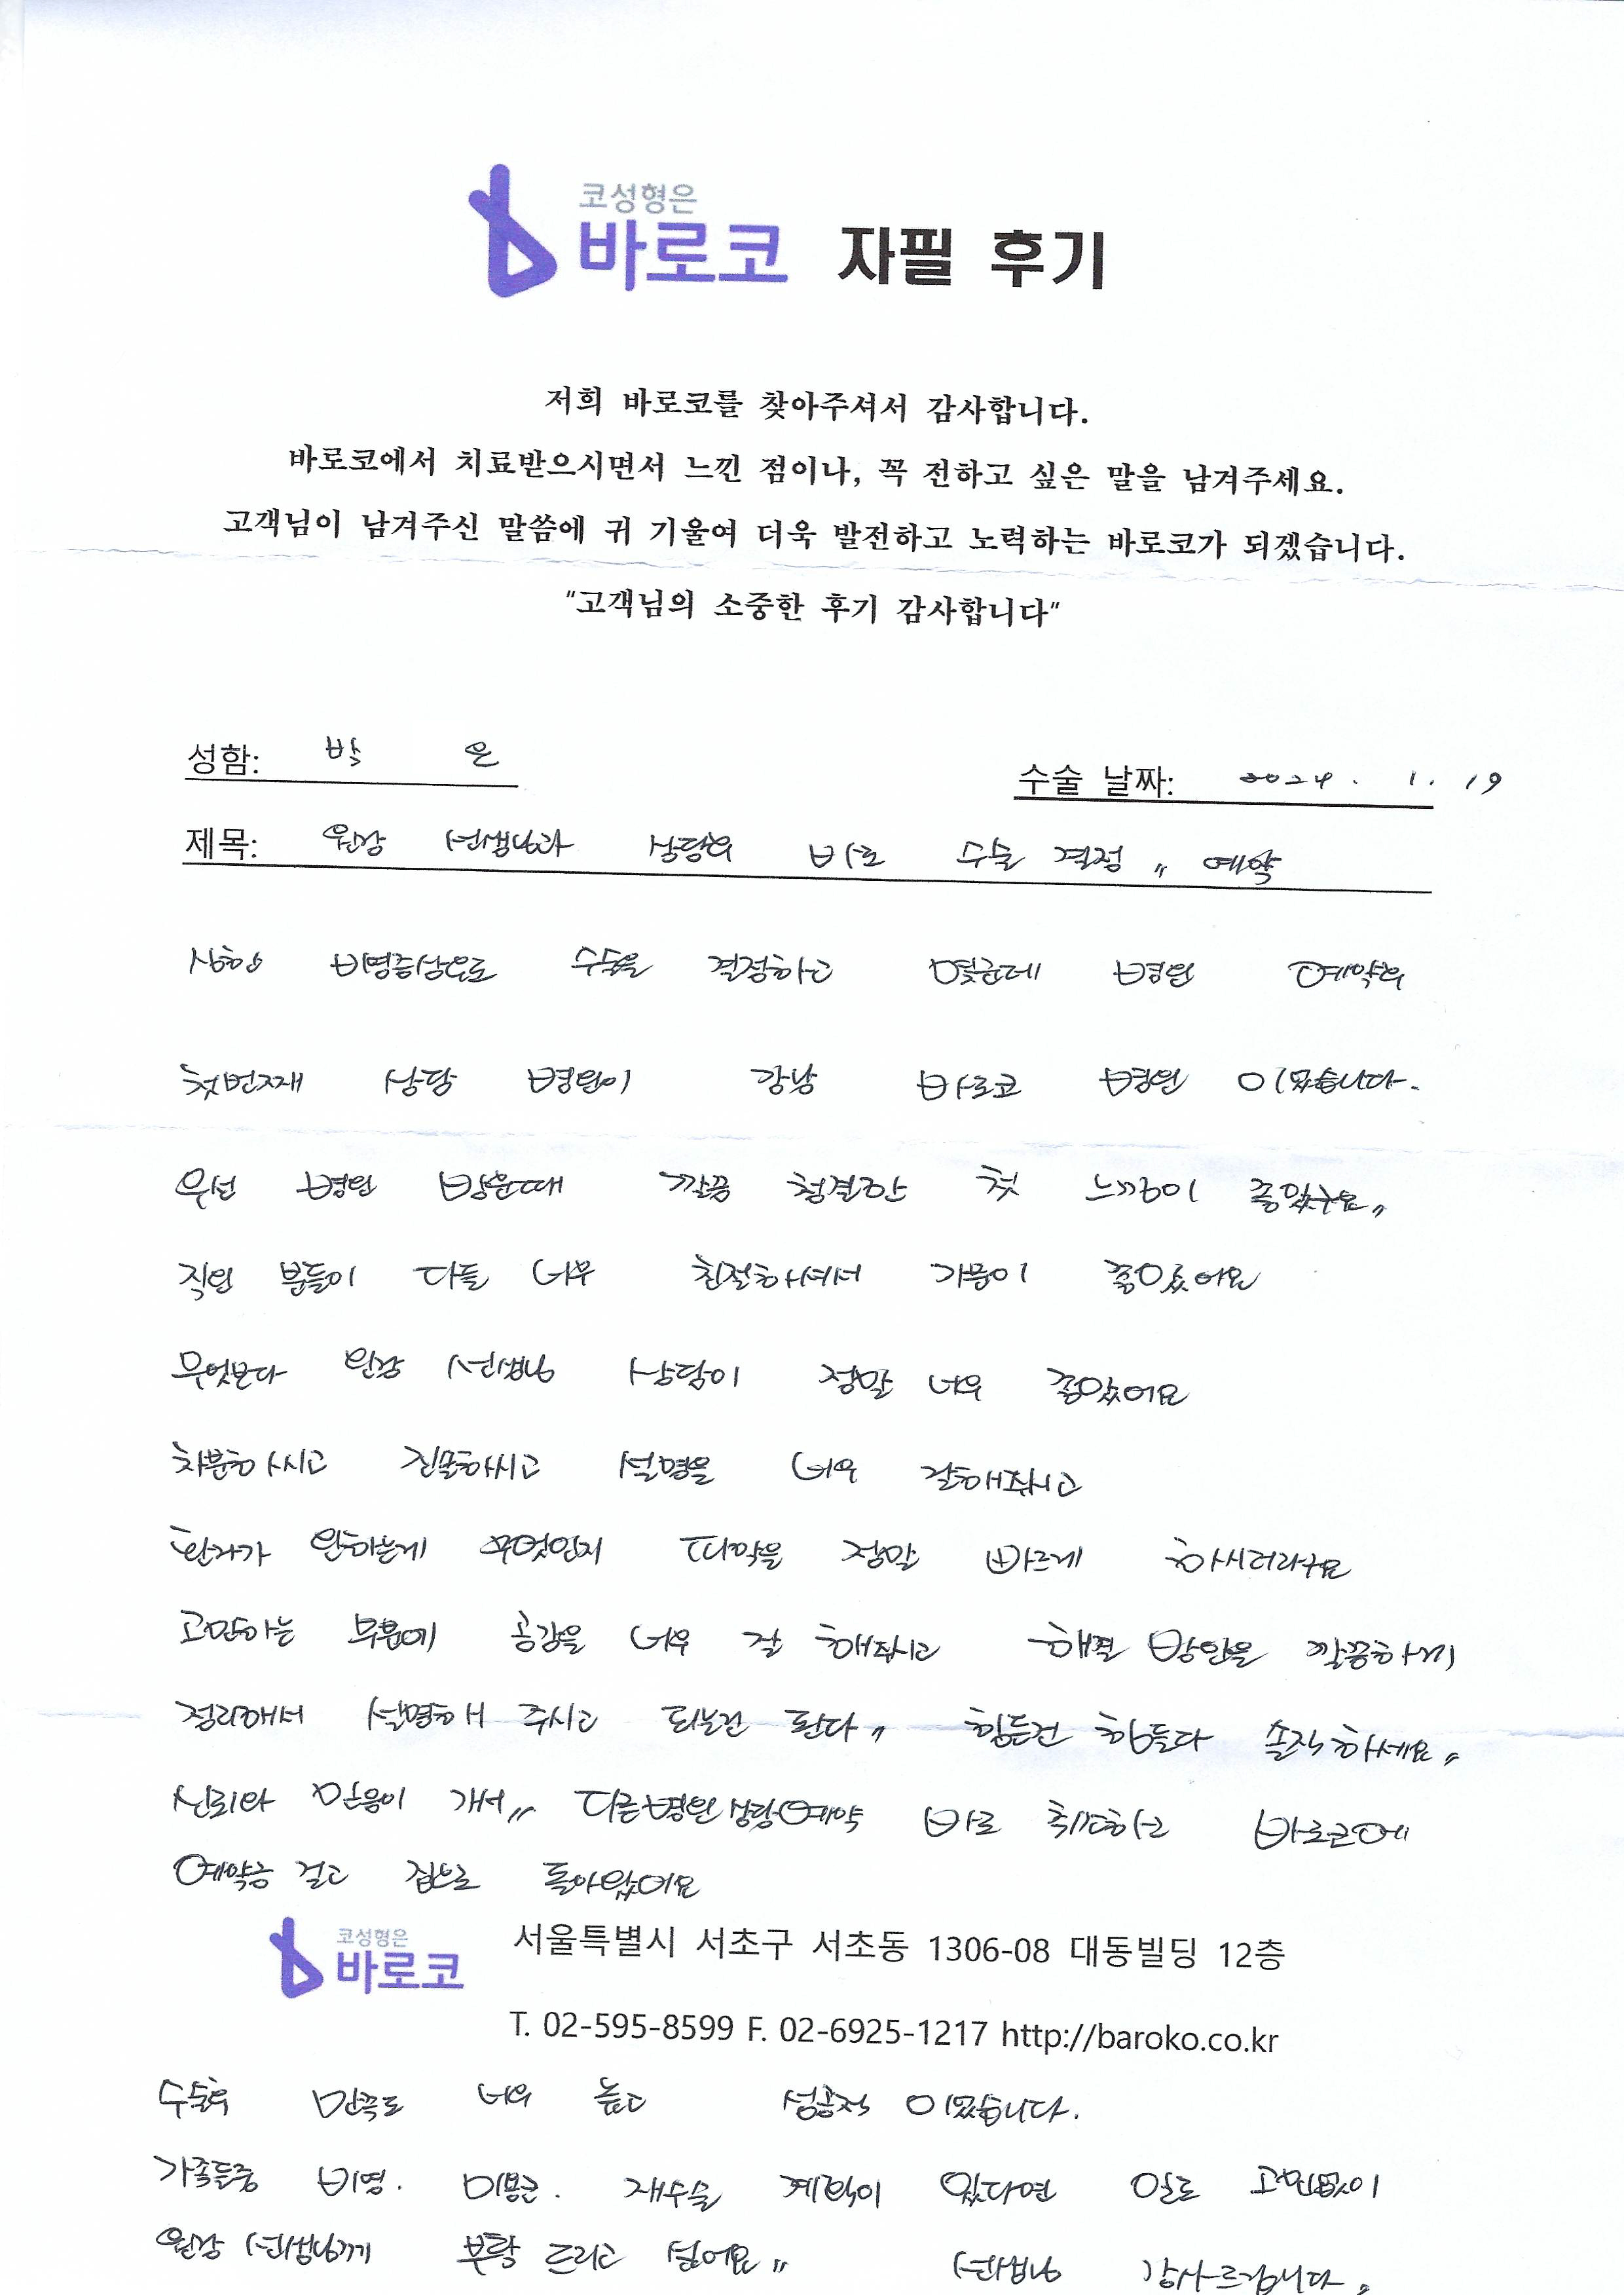 코성형은
바로코 자필 후기
저희 바로코를 찾아주셔서 감사합니다.
바로코에서 치료받으시면서 느낀 점이나, 꼭 전하고 싶은 말을 남겨주세요.
고객님이 남겨주신 말씀에 귀 기울여 더욱 발전하고 노력하는 바로코가 되겠습니다.
"고객님의 소중한 후기 감사합니다"
성함: 박 은 수술 날짜: 2024. 1. 19
제목: 원장 선생님과 상담후 바로 수술 결정 〃 예약
심한 비염증상으로 수술을 결정하고 몇군데 병원 예약후
첫번째 상담 병원이 강남 바로코 병원 이였습니다.
우선 병원 방문때 깔끔 청결한 첫 느낌이 좋았구요〃
직원 분들이 다들 너무 친절하셔서 기분이 좋았어요
무엇보다 원장 선생님 상담이 정말 너무 좋았어요
차분하시고 진솔하시고 설명을 너무 잘해주시고
환자가 원하는게 무엇인지 파악을 정말 빠르게 하시더라구요
고민하는 부분에 공감을 너무 잘 해주시고 해결 방안을 깔끔하게
정리해서 설명해 주시고 되는건 된다〃 힘든건 힘들다 솔직하세요〃
신뢰와 믿음이 가서〃 다른병원 상담예약 바로 취소하고 바로코에
예약금 걸고 집으로 돌아왔어요
코성형은
바로코
서울특별시 서초구 서초동 1306-08 대동빌딩 12층
T. 02-595-8599 F. 02-6925-1217 http://baroko.co.kr
수술후 만족도 너무 높고 성공적 이였습니다.
가족들중 비염. 미용코. 재수술 계획이 있다면 일도 고민없이
원장 선생님께 부탁 드리고 싶어요〃 선생님 감사드립니다〃